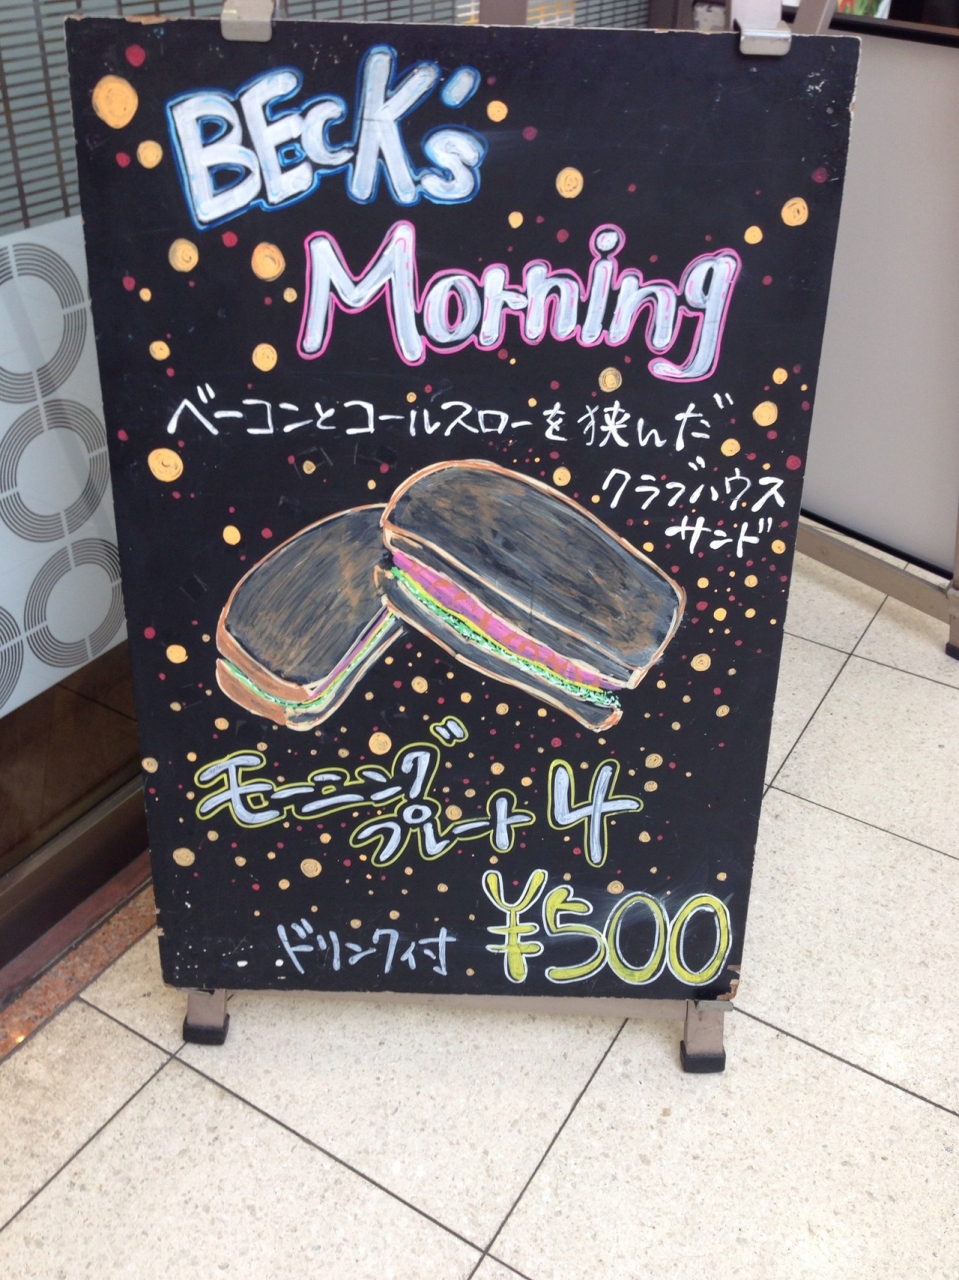 BECK's
Morning
ベーコンとコールスローを挟んだ
クラブハウス
サンド
モーニング
プレート4
¥500
ドリンク付